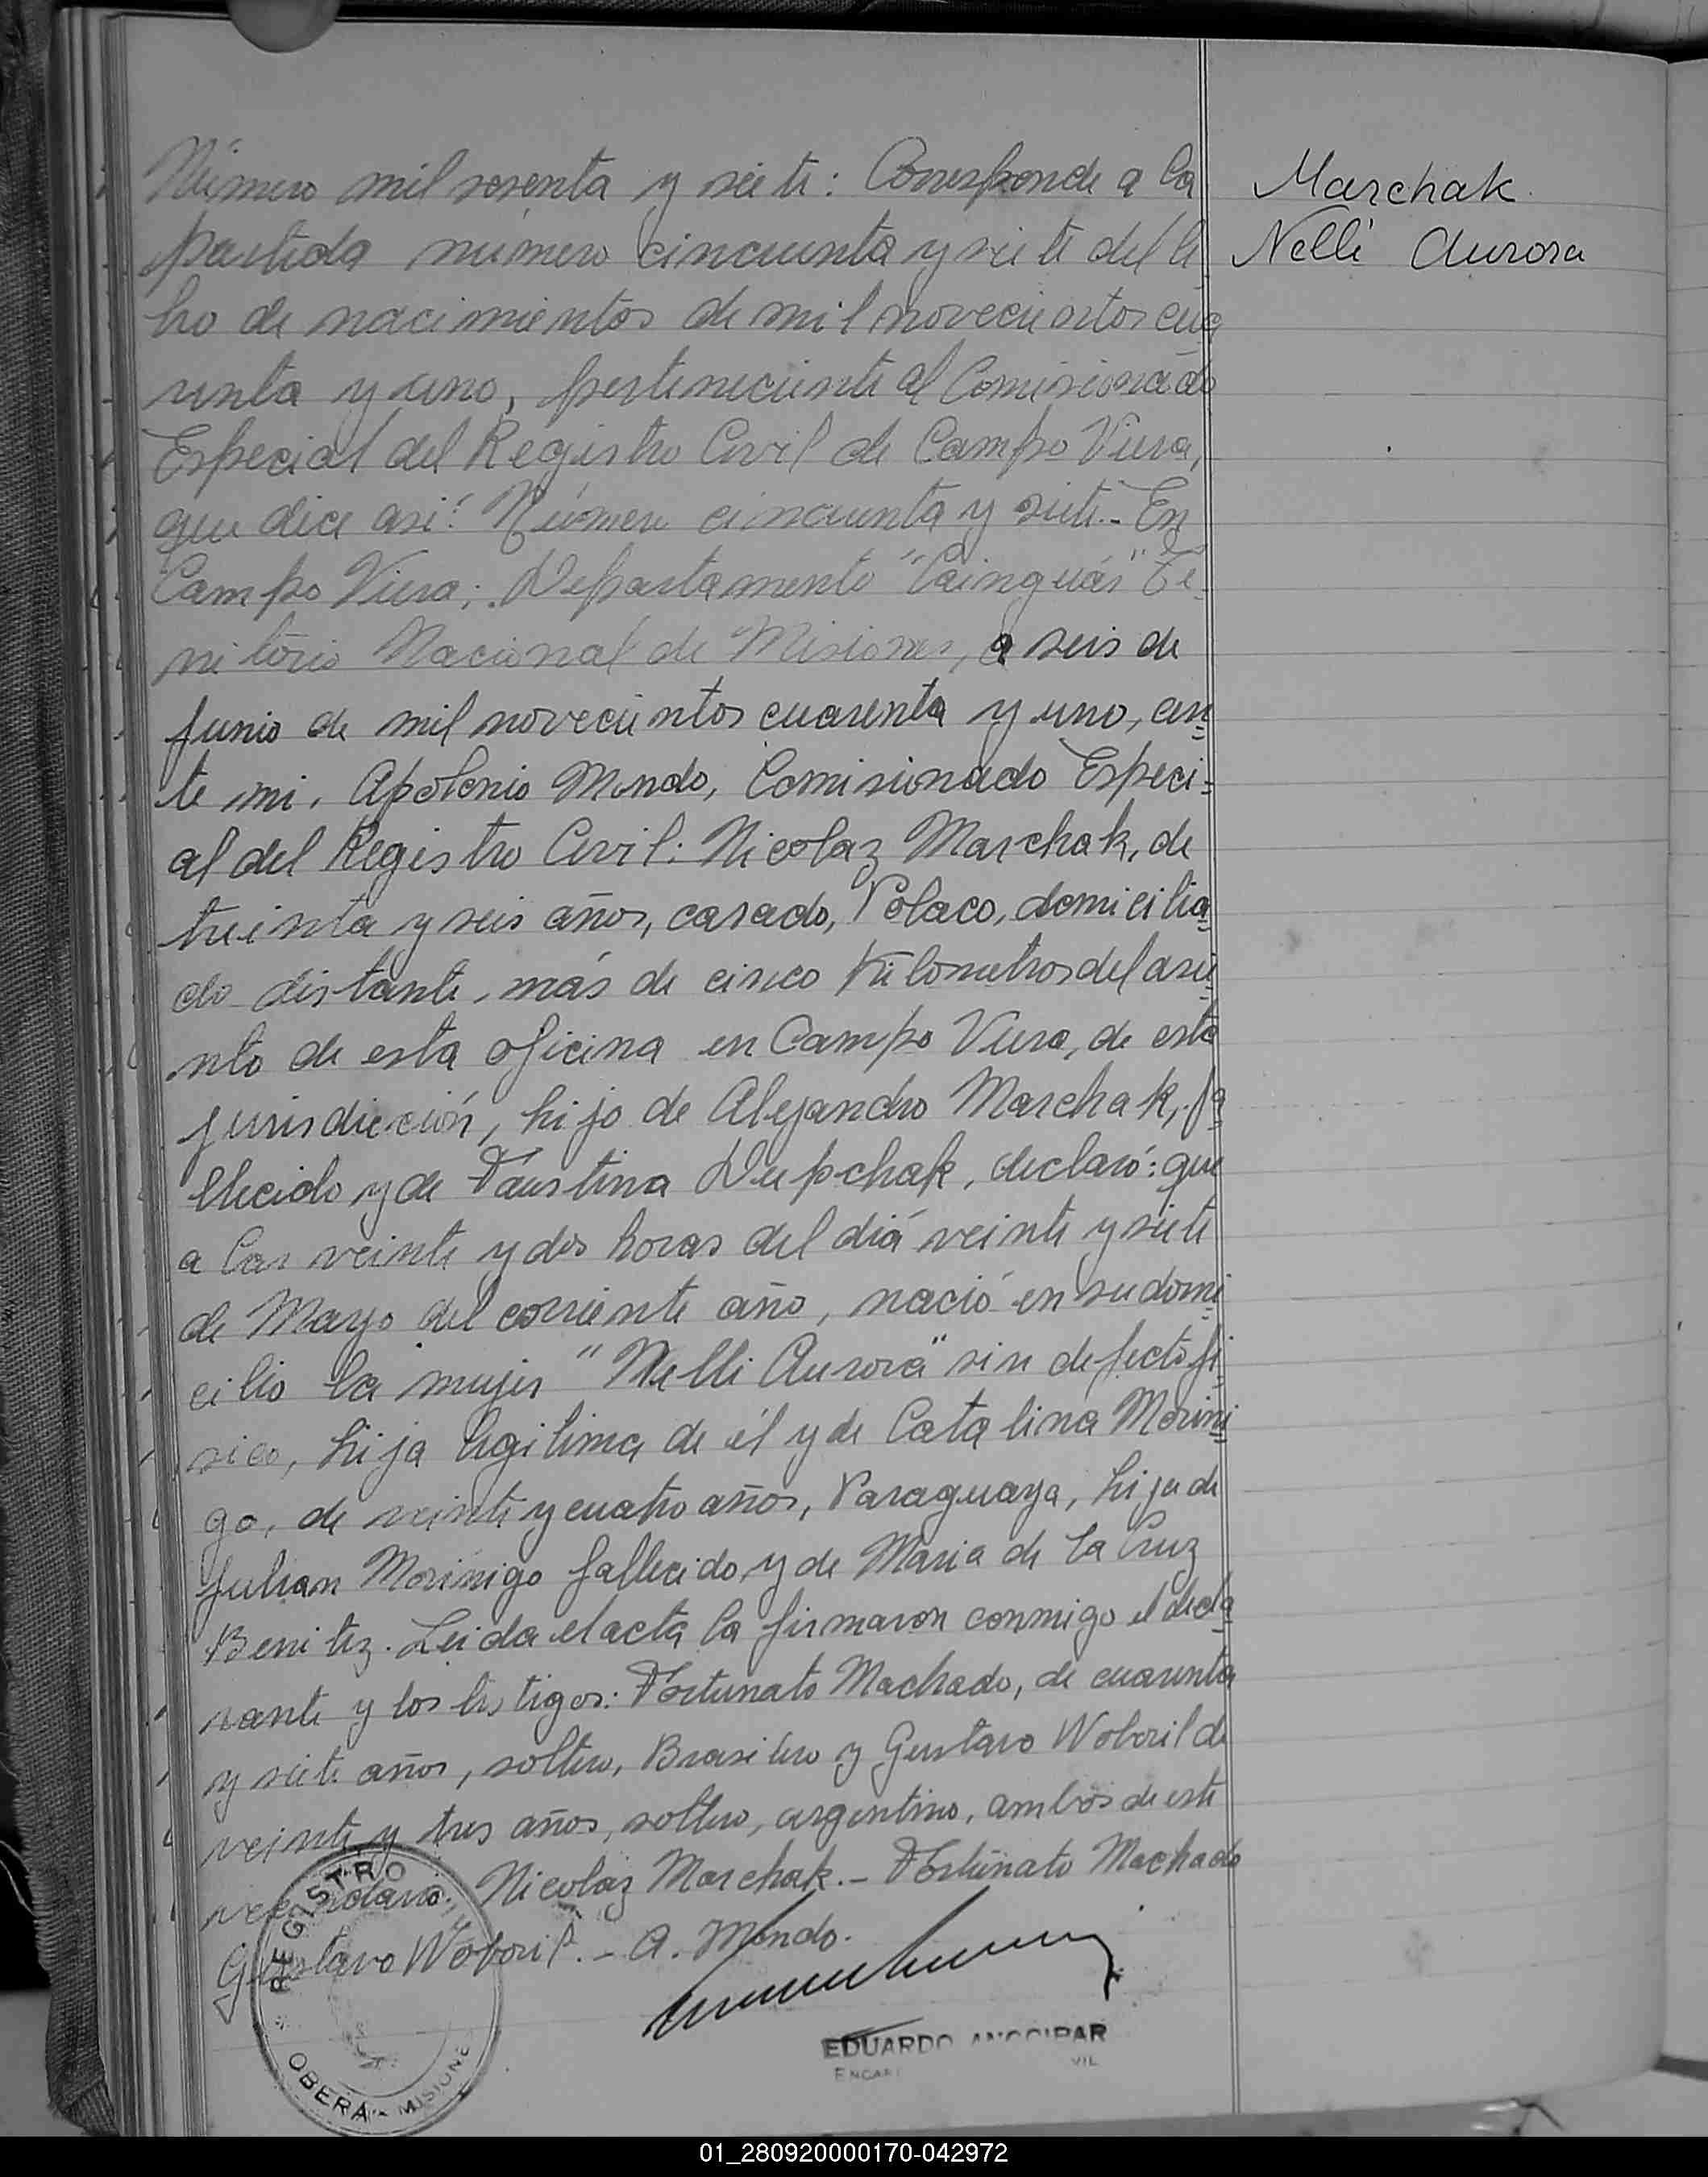 Número mil sesenta y siete: Corresponde a la
partida número cincuenta y siete del li
bro de nacimientos de mil novecientos cua
renta y uno, perteneciente al Comisionado
Especial del Registro Civil de Campo Viera,
que dice así: Número cincuenta y siete.- En
Campo Viera; Departamento "Cainguás" Te-
rritorio Nacional de Misiones, a seis de
Junio de mil novecientos cuarenta y uno, an=
te mi, Apolonio Mondo, Comisionado Especi=
al del Registro Civil: Nicolaz Marchak, de
treinta y seis años, casado, Polaco, domicilia=
do distante, más de cinco Kilometros del asie=
nto de esta oficina en Campo Viera, de esta
jurisdicción, hijo de Alejandro Marchak, fa=
llecido y de Faustina Depchak, declaró: que
a las veinte y dos horas del diá veinte y siete
de Mayo del corriente año, nació en su domi=
cilio la mujer "Nelli Aurora" sin defecto fi=
sico, hija legitima de él y de Catalina Morini=
go, de veinte y cuatro años, Paraguaya, hija de
Julian Morinigo fallecido y de Maria de La Cruz
Benitez. Leida el acta la firmaron conmigo el decla=
rante y los testigos: Fortunato Machado, de cuarenta
y siete años, soltero, Brasilero y Gustavo Woboril de
veinte y tres años, soltero, argentino, ambos de este
vecindario; Nicolaz Marchak.- Fortunato Machado
Gustavo Woboril.- A. Mondo.
Marchak
Nelli Aurora
REGISTRO
OBERÁ - MISIONES
EDUARDO
01_280920000170-042972